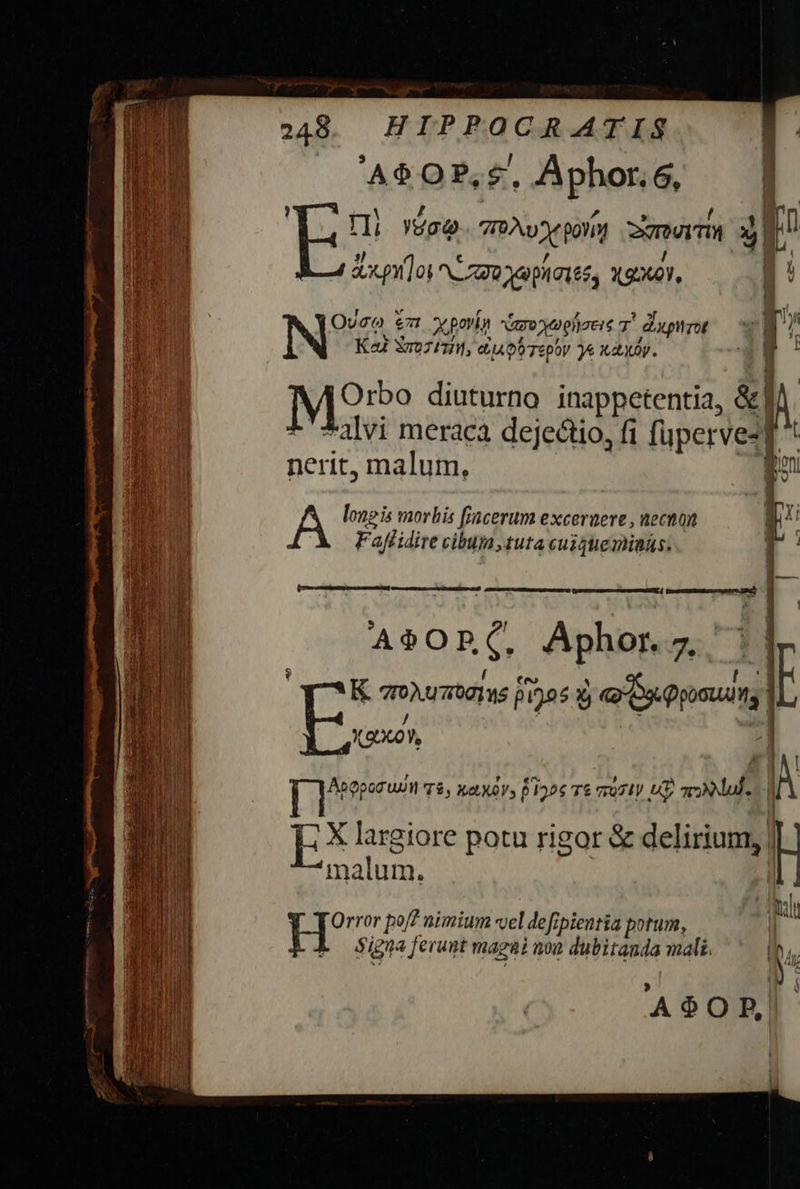 248. HIPPOCRATIS
ἈΦΟΡ. ϛ΄. Aphor. 6,
ἘΠὶ νέσῳ πολυχρονίῃ ἀποσιτίη καὶ
ἄκρητοι ὑποχωρήσιες, κακόν.
Νούσῳ ἐπὶ χρονίῃ ὑποχωρήσεις τ' ἄκρητοι
Καὶ ἀποσιτίη, ἀμφότερόν γε κακόν.
MOrbo diuturno inappetentia, &
alvi meraca dejectio, ſi ſuperve-
nerit, malum.
A longis morbis ſincerum excernere, necnon
Faſtidire cibum, tuta cuique minùs.
ἈΦΟΡ. ζ. Aphor. 7.
ἘΚ πολυποσίης ῥῖγος καὶ παραφροσύνη,
κακόν.
Ἀφροσύνη τε, κακόν, ῥῖγός τε πόσιν μετὰ πολλήν.
EX largiore potu rigor & delirium,
malum.
HOrror poſt nimium vel deſipientia potum,
Signa ferunt magni non dubitanda mali.
ἈΦΟΡ.